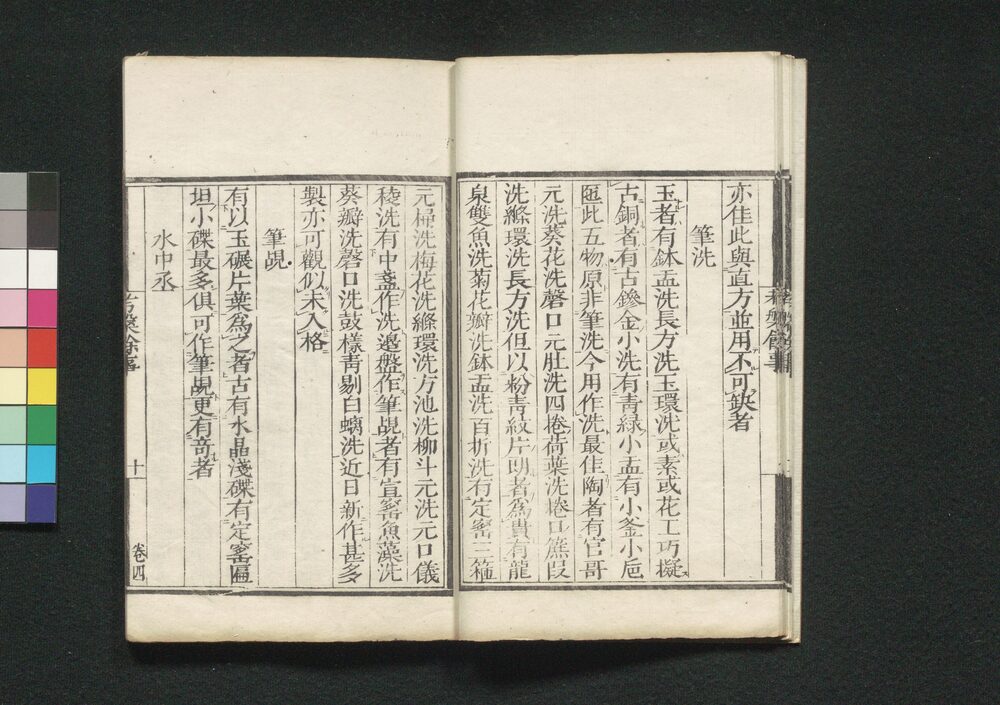 亦佳此與直方並用不可缺者
筆洗
玉者有鉢盂洗長方洗玉環洗或素或花工巧擬
古銅者有古鏒金小洗有青緑小盂有小釜小巵
匜此五物原非筆洗今用作洗最佳陶者有官哥
元洗葵花洗磬口元肚洗四捲荷葉洗捲口簾段
洗絛環洗長方洗但以粉青紋片朗者為貴有龍
泉雙魚洗菊花瓣洗鉢盂洗百折洗有定窰三箍
元桶洗梅花洗絛環洗方池洗柳斗元洗元口儀
稜洗有中盞作洗邊盤作筆覘者有宣窰魚藻洗
葵瓣洗磬口洗鼓樣青剔白螭洗近日新作甚多
製亦可觀似未入格
筆覘
有以玉碾片葉為之者古有水晶淺碟有定窰匾
坦小碟最多俱可作筆覘更有奇者
水中丞
考槃餘事
十
卷四